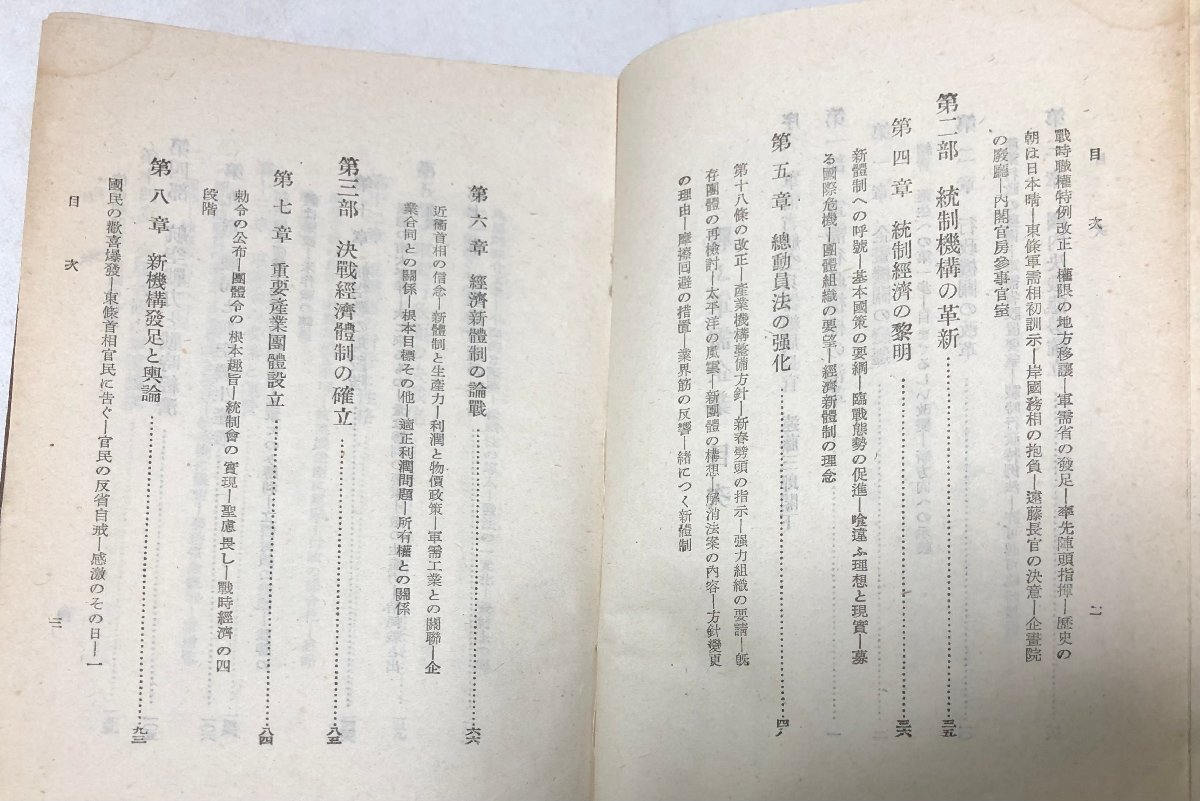 目次
二
戰時職權特例改正―權限の地方移讓―軍需省の發足―率先陣頭指揮―歷史の
朝は日本晴―東條軍需相初訓示―岸國務相の抱負―遠藤長官の決意―企畫院
の廢廳―內閣官房參事官室
第二部 統制機構の革新……三五
第四章 統制經濟の黎明……三六
新體制への呼號―基本國策の要綱―臨戰態勢の促進―喰違ふ理想と現實―募
る國際危機―團體組織の要望―經濟新體制の理念
第五章 總動員法の强化……四八
第十八條の改正―產業機構整備方針―新春劈頭の指示―强力組織の要請―旣
存團體の再檢討―太平洋の風雲―新團體の構想―解消法案の內容―方針變更
の理由―摩擦回避の措置―業界筋の反響―緖につく新體制
第六章 經濟新體制の論戰……六六
近衞首相の信念―新體制と生產力―利潤と物價政策―軍需工業との關聯―企
業合同との關係―根本目標その他―適正利潤問題―所有權との關係
第三部 決戰經濟體制の確立……八三
第七章 重要產業團體設立……八四
勅令の公布―團體令の根本趣旨―統制會の實現―聖慮畏し―戰時經濟の四
段階
第八章 新機構發足と輿論……九三
國民の歡喜爆發―東條首相官民に吿ぐ―官民の反省自戒―感激のその日―一
目次
三